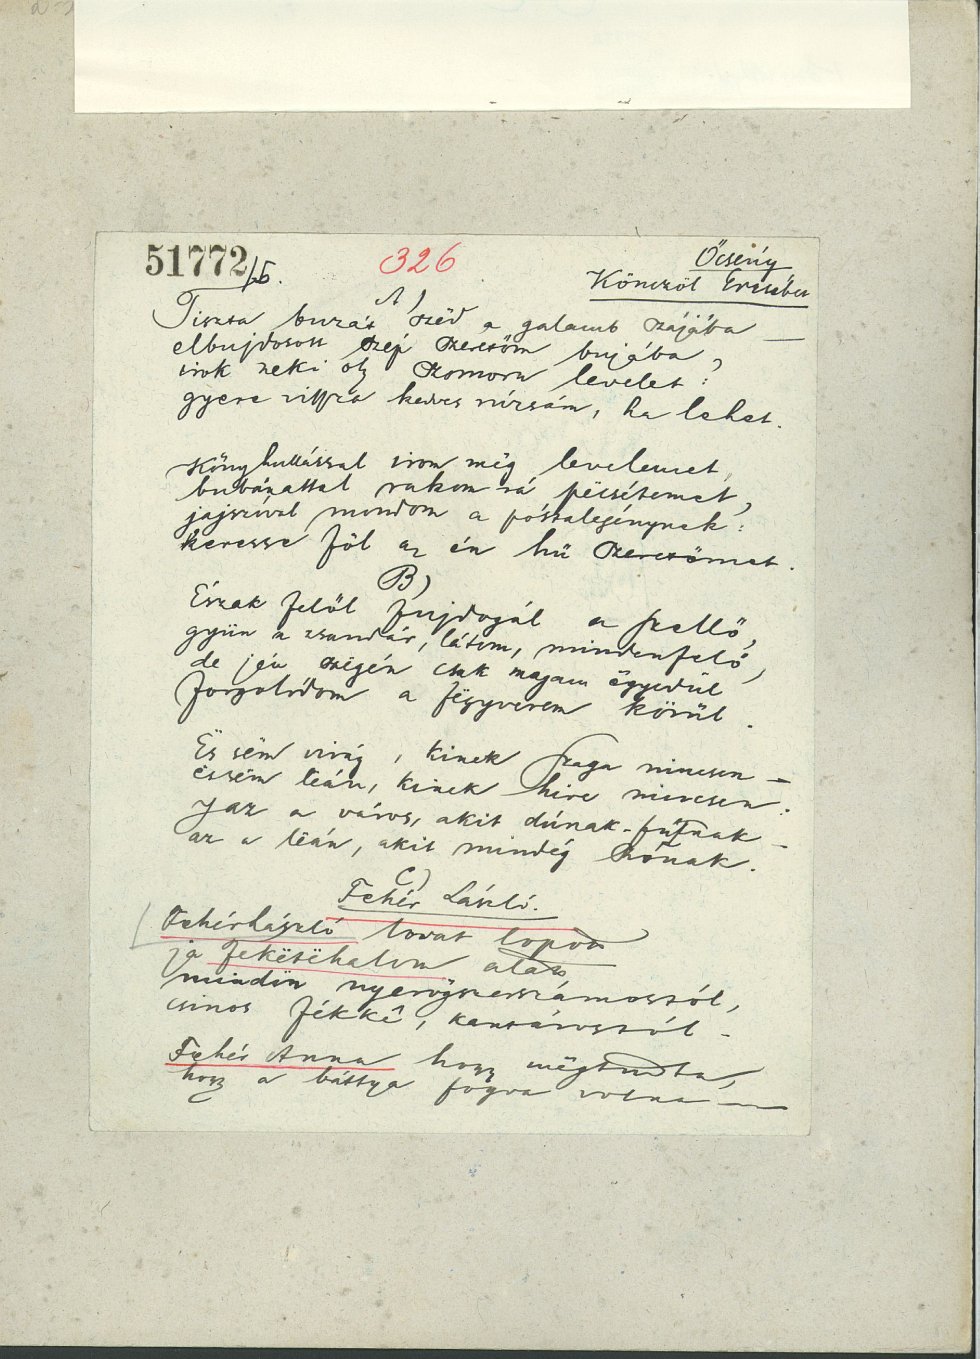 51772/b.
326
Őcsény
Könczöl Erzsébet
A)
Tiszta buzát szëd a galamb szájába —
elbujdosott szép szeretőm bujába,
irok neki oly szomoru levelet:
gyere vissza kedves rúzsám, ha lehet.
Könyhullással irom mëg levelemet,
bubánattal rakom rá pëcsétemet,
jajszóval mondom a póstalegénynek:
keresse föl az én hű szeretőmet.
B)
Észak felől fujdogál a szellő,
gyün a zsandár, látom, mindenfelő,
de jén szëgén csak magam ëgyedül
forgolódom a fëgyverem körül.
Ës sëm virág, kinek szaga nincsen –
ës sëm leán, kinek hire nincsen.
Jaz a város, akit dúnak-fúnak –
az a leán, akit mindég szónak.
C)
Fehér László.
Fehér László lovat lopott
ja feketëhalom alatt
mindën nyerëgszerszámostól,
csinos fékkê, kantárostól –
Fehér Anna hogy mëgtudta,
hogy a báttya fogva volna —